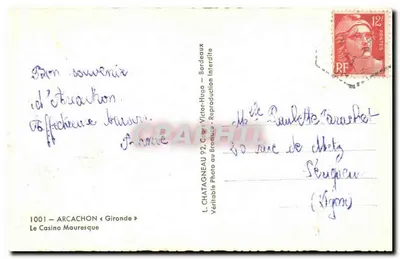 Bon souvenir
d'Arcachon
Affectueux
1001 - ARCACHON « Gironde »
Le Casino Mauresque
L. CHATAGNEAU 92, Cours Victor-Hugo - Bordeaux
Véritable Photo au Bromure - Reproduction Interdite
12F
POSTES
RF
Mlle Paulette
20 rue de Metz